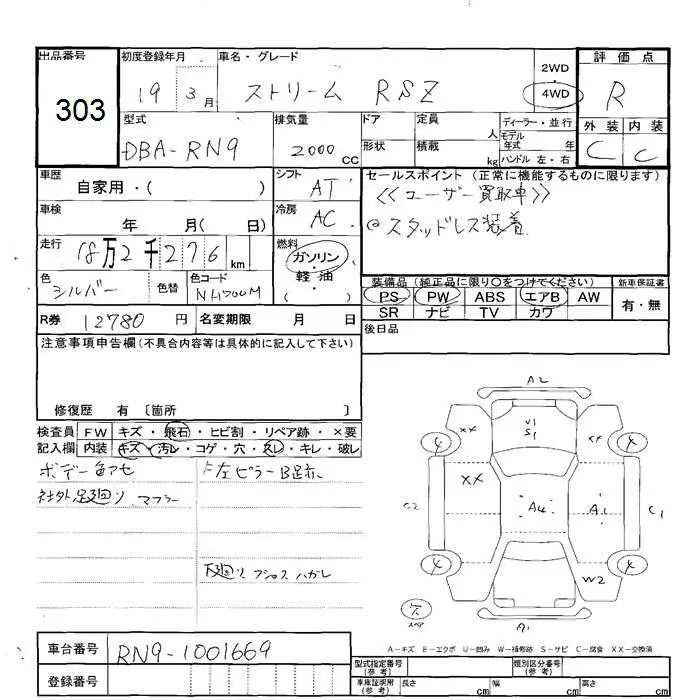 出品番号 初度登録年月 車名・グレード 評価点
303 19 3月 ストリーム RSZ 2WD 4WD R
型式 排気量 ドア 定員 人 ディーラー・並行 外装 内装
DBA-RN9 2000cc 形状 積載 kg モデル年式 年 ハンドル 左・右 C C
車歴 自家用・( ) シフト AT セールスポイント(正常に機能するものに限ります)
<<ユーザー買取車>>
車検 年 月( 日) 冷房 AC ◎スタッドレス装着
走行 18万2千276km 燃料 ガソリン・軽油
色 シルバー 色替 色コード NH700M 装備品(純正品に限り○をつけてください) 新車保証書
PS PW ABS エアB AW 有・無
SR ナビ TV カワ
R券 12780円 名変期限 月 日 後日品
注意事項申告欄(不具合内容等は具体的に記入して下さい)
修復歴 有 〔箇所 〕
検査員 FW キズ・飛石・ヒビ割・リペア跡・×要
記入欄 内装 キズ・汚レ・コゲ・穴・スレ・キレ・破レ
ボデー色アセ 左ピラーB足赤
社外足廻り マフラー
下廻リ ブシュス ハガレ
A2
××
V1
S1
××
C2
A4
A1
C1
W2
A1
穴
スペア
A-キズ E-エクボ U-凹み W-補修跡 S-サビ C-腐食 XX-交換済
車台番号 RN9-1001669
登録番号
型式指定番号(参考) 類別区分番号(参考)
車庫証明用(参考) 長さ cm 幅 cm 高さ cm